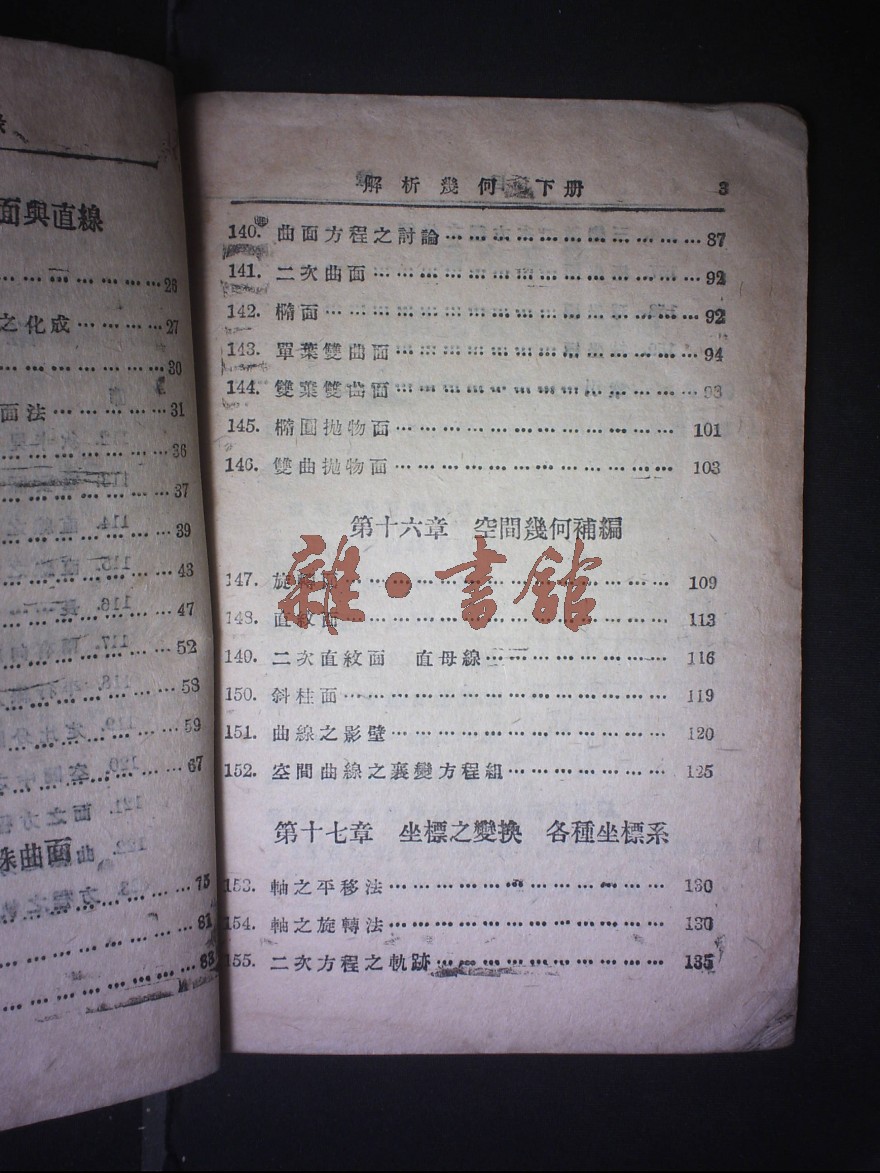 面與直線
26
之化成 ………… 27
30
面法 ………… 31
36
37
39
43
47
52
58
59
67
殊曲面
75
81
88
解析幾何 下册 3
140. 曲面方程之討論 ………… 87
141. 二次曲面 ………… 92
142. 橢面 ………… 92
143. 單葉雙曲面 ………… 94
144. 雙葉雙曲面 …………
145. 橢圓拋物面 ………… 101
146. 雙曲拋物面 ………… 103
第十六章 空間幾何補編
147. 旋轉面 ………… 109
148. 直紋面 ………… 113
149. 二次直紋面 直母線 ………… 116
150. 斜柱面 ………… 119
151. 曲線之影壁 ………… 120
152. 空間曲線之襄變方程組 ………… 125
第十七章 坐標之變換 各種坐標系
153. 軸之平移法 ………… 130
154. 軸之旋轉法 ………… 130
155. 二次方程之軌跡 ………… 135
雜·書館